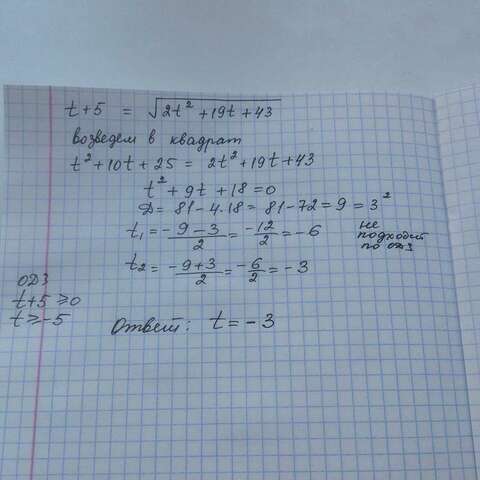 t+5 = √(2t²+19t+43)
возведем в квадрат
t²+10t+25 = 2t²+19t+43
t²+9t+18=0
Д= 81-4.18 = 81-72=9=3²
t₁=-9-3/2=-12/2=-6
не
подходит
по одз
t₂=-9+3/2=-6/2=-3
ОДЗ
t+5≥0
t≥-5
Ответ: t=-3